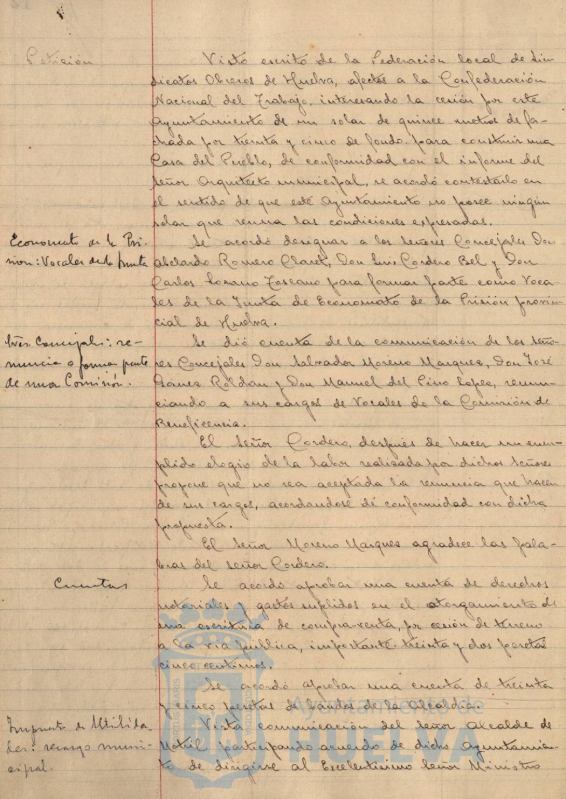 Petición
Visto escrito de la Federación local de Sin-
dicatos Obreros de Huelva, afectos a la Confederación
Nacional del Trabajo, interesando la cesión por este
Ayuntamiento de un solar de quince metros de fa-
chada por treinta y cinco de fondo para construir una
Casa del Pueblo, de conformidad con el informe del
señor Arquitecto municipal, se acordó contestarlo en
el sentido de que este Ayuntamiento no posee ningún
solar que reuna las condiciones expresadas.
Economato de la Pri-
sion: Vocales de la Junta
Se acordó designar a los señores Concejales Don
Abelardo Romero Claret, Don Luis Cordero Bel y Don
Carlos Lozano Toscano para formar parte como Voca-
les de la Junta de Economato de la Prisión provin-
cial de Huelva.
tres Concejales: re-
nuncia a formar parte
de una Comisión.
Se dió cuenta de la comunicación de los seño-
res Concejales Don Salvador Moreno Marquez, Don José
Gómez Roldan y Don Manuel del Pino Lopez, renun-
ciando a sus cargos de Vocales de la Comisión de
Beneficencia.
El Señor Cordero, después de hacer un cum-
plido elogio de la labor realizada por dichos señores
propone que no sea aceptada la renuncia que hacen
de sus cargos, acordandose de conformidad con dicha
propuesta.
El Señor Moreno Marquez agradece las pala-
bras del señor Cordero.
Cuentas
Se acordó aprobar una cuenta de derechos
notariales y gastos suplidos en el otorgamiento de
una escritura de compra-venta, por cesión de terreno
a la vía pública, importante treinta y dos pesetas
cinco centimos.
Se acordó aprobar una cuenta de treinta
y cinco pesetas de bandos de la Alcaldía.
Impuesto de Utilida-
des: recargo muni-
cipal.
Vista comunicación del señor Alcalde de
Motril participando acuerdo de dicho Ayuntamien-
to de dirigirse al Excelentisimo Señor Ministro
Ayuntamiento de
HUELVA